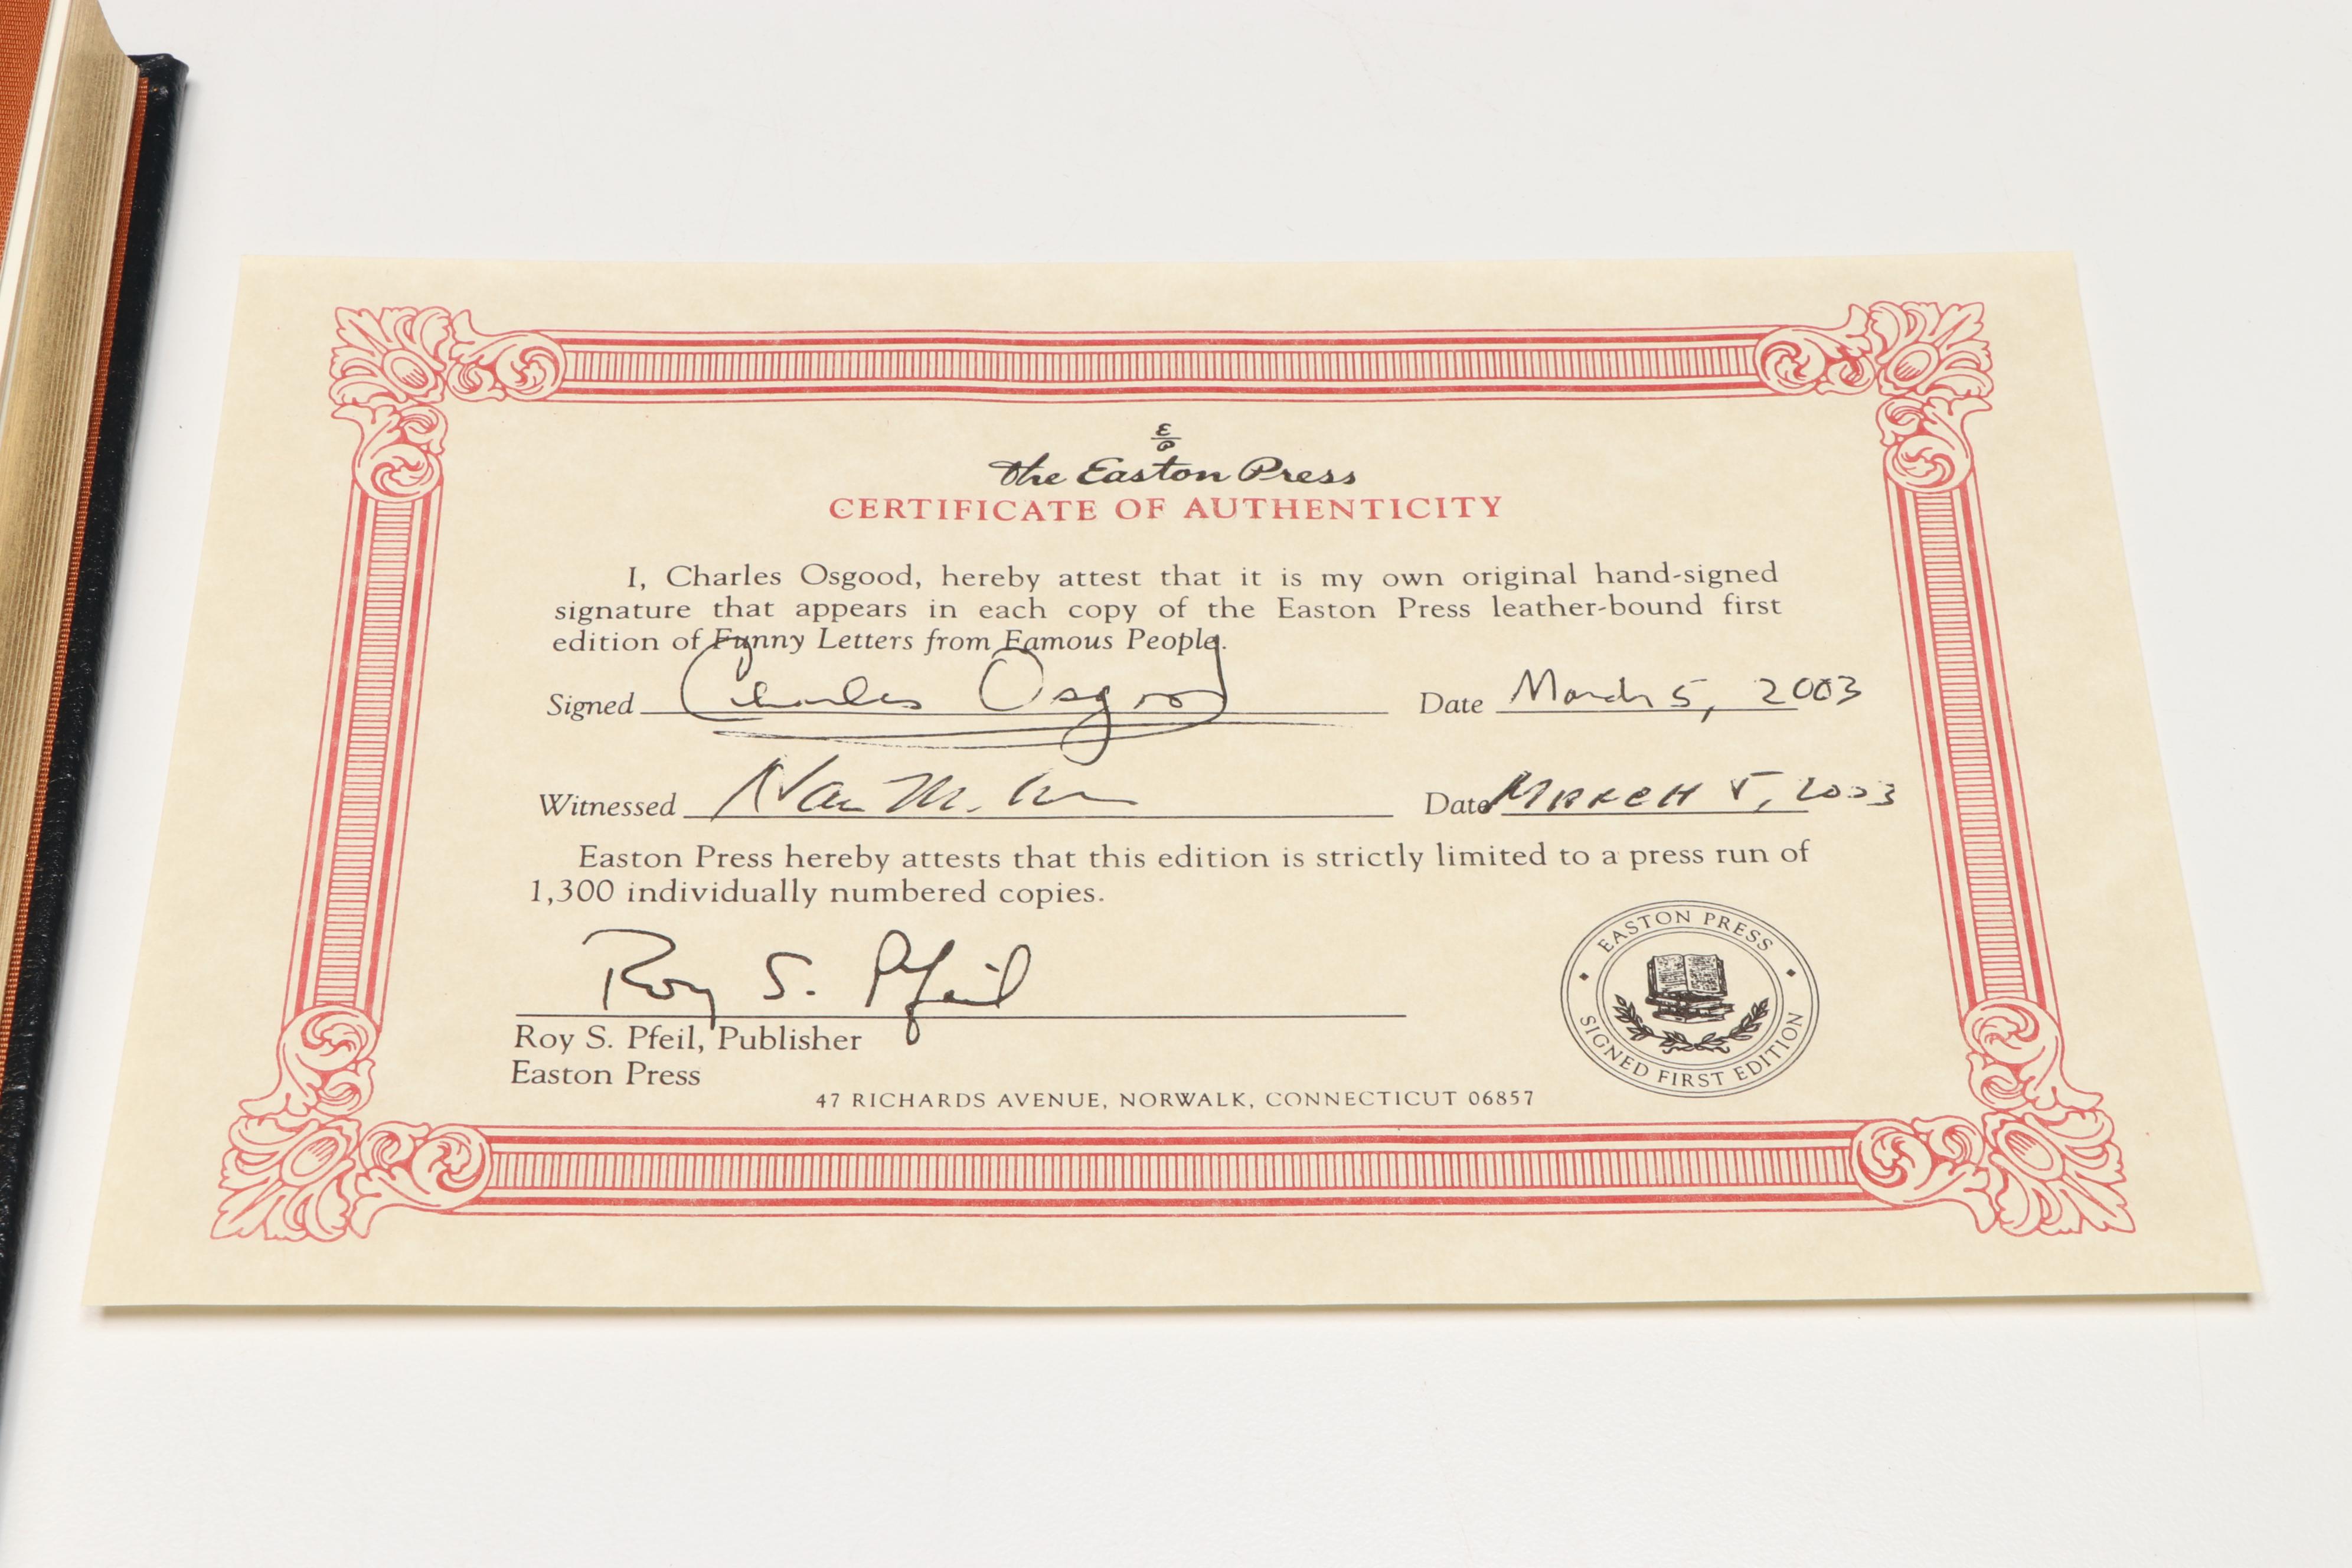 E
P
the Easton Press
CERTIFICATE OF AUTHENTICITY
I, Charles Osgood, hereby attest that it is my own original hand-signed
signature that appears in each copy of the Easton Press leather-bound first
edition of Funny Letters from Famous People.
Signed Charles Osgood Date March 5, 2003
Witnessed Date MARCH 5, 2003
Easton Press hereby attests that this edition is strictly limited to a press run of
1,300 individually numbered copies.
Roy S. Pfeil
Roy S. Pfeil, Publisher
Easton Press
EASTON PRESS
SIGNED FIRST EDITION
47 RICHARDS AVENUE, NORWALK, CONNECTICUT 06857